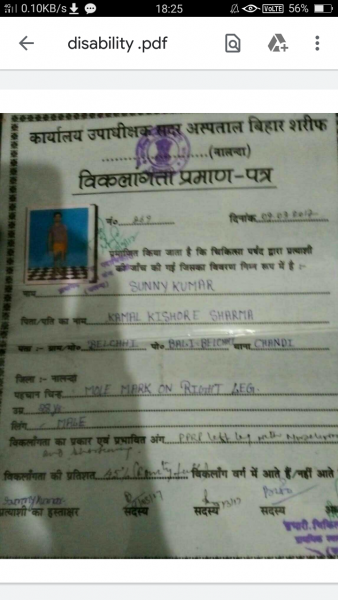 0.10KB/s 18:25 VoLTE 56%
disability .pdf
कार्यालय उपाधीक्षक सदर अस्पताल बिहार शरीफ
(नालन्दा)
विकलांगता प्रमाण-पत्र
नं० 269 दिनांक
प्रमाणित किया जाता है कि चिकित्सा पर्षद द्वारा प्रत्याशी
की जाँच की गई जिसका विवरण निम्न रूप में है :-
नाम SUNNY KUMAR
पिता/पति का नाम KAMAL KISHORE SHARMA
पता :- ग्राम/मो० BELCHHI पो० BELCHHI थाना CHANDI
जिला :- नालन्दा
पहचान चिन्ह MOLE MARK ON RIGHT LEG.
उम्र
लिंग MALE
विकलांगता का प्रकार एवं प्रभावित अंग PPRP left leg with
विकलांगता की प्रतिशत 45% विकलांग वर्ग में आते हैं/नहीं आते
प्रत्याशी का हस्ताक्षर सदस्य सदस्य सदस्य